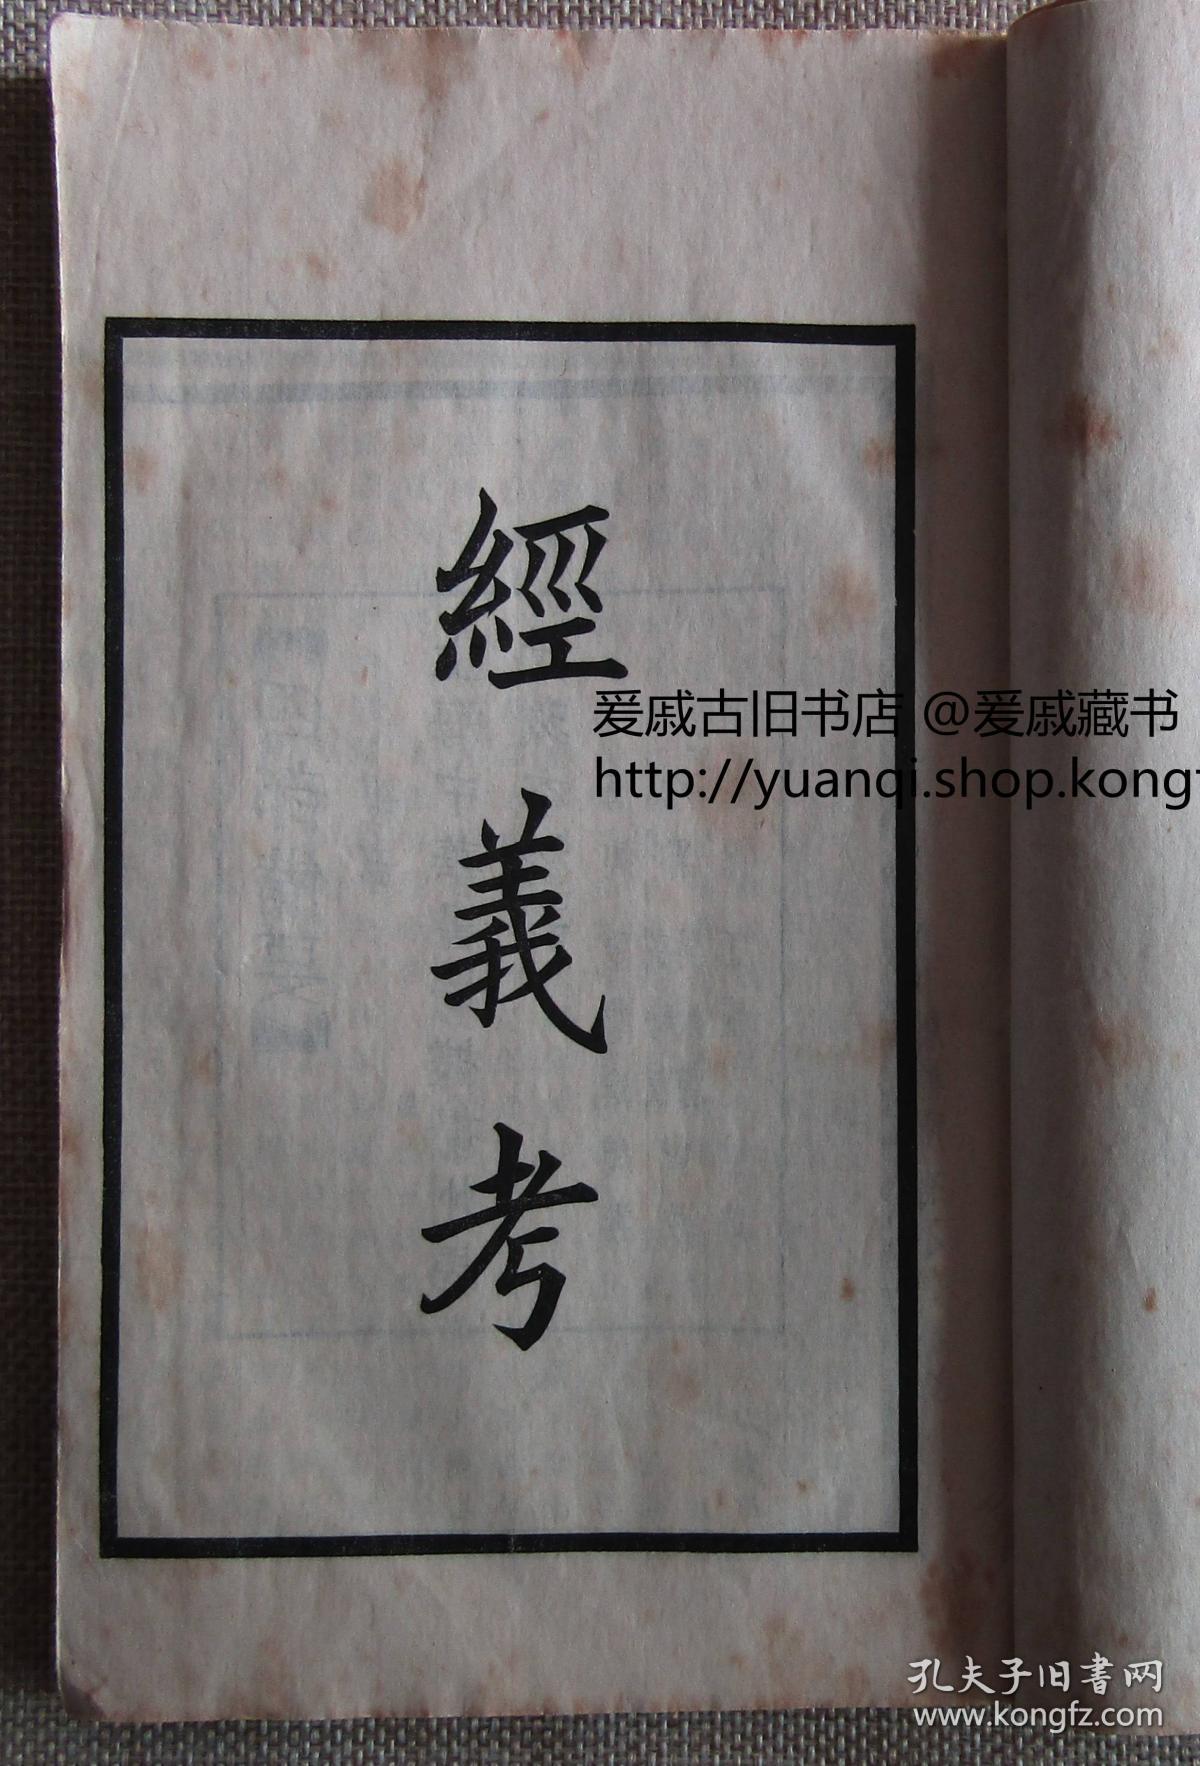 經義考
爰戚古旧书店 @爰戚藏书
http://yuanqi.shop.kongf
孔夫子旧書网
www.kongfz.com